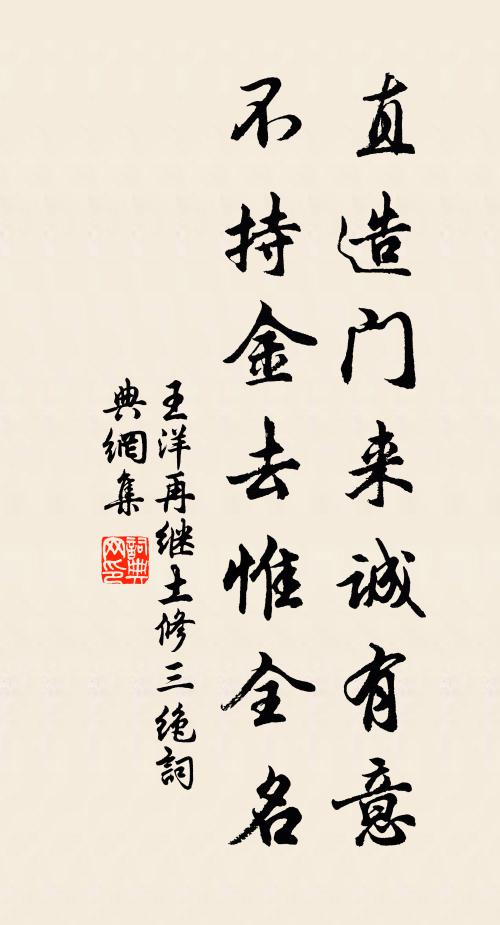 直造门来诚有意
不持金去惟全名
王洋再继土修三绝词
典網集
詞典网印